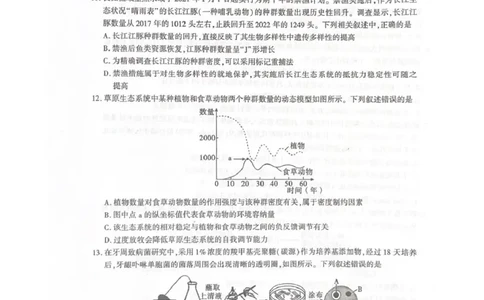 态状况“晴雨表”的长江江豚（一种哺乳动物）的种群数量出现历史性回升。调查显示，长江江
豚数量从2017年的1012头左右，止跌回升至2022年的1249头。下列相关叙述中，正确的是
A. 长江江豚种群数量的回升，直接反映了其生物多样性中遗传多样性的提高
B. 禁渔后鱼类资源恢复，江豚种群数量呈“J”形增长
C. 为精确调查长江江豚的种群密度，可以采用标记重捕法
D. 禁渔措施属于对生物多样性的就地保护，其实施后长江生态系统的抵抗力稳定性可随之
提高
12. 草原生态系统中某种植物和食草动物两个种群数量的动态模型如图所示。下列叙述错误的是
数量
2000
1000
a
植物
食草动物
0 10 20 30 40 50 60
时间（年）
A. 植物数量对食草动物数量的作用强度与该种群密度有关，属于密度制约因素
B. 图中点a的纵坐标值代表食草动物的环境容纳量
C. 该生态系统的相对稳定与植物和食草动物之间的负反馈调节有关
D. 过度放牧会降低草原生态系统的自我调节能力
13. 在牙周致病菌研究中，采用1%浓度的羧甲基壳聚糖（碳源）作为培养基添加物，经过18天培养
后，牙龈卟啉单胞菌的菌落周围会出现清晰的透明圈，如图所示。下列叙述错误的是
吸取
上清液
涂布
B